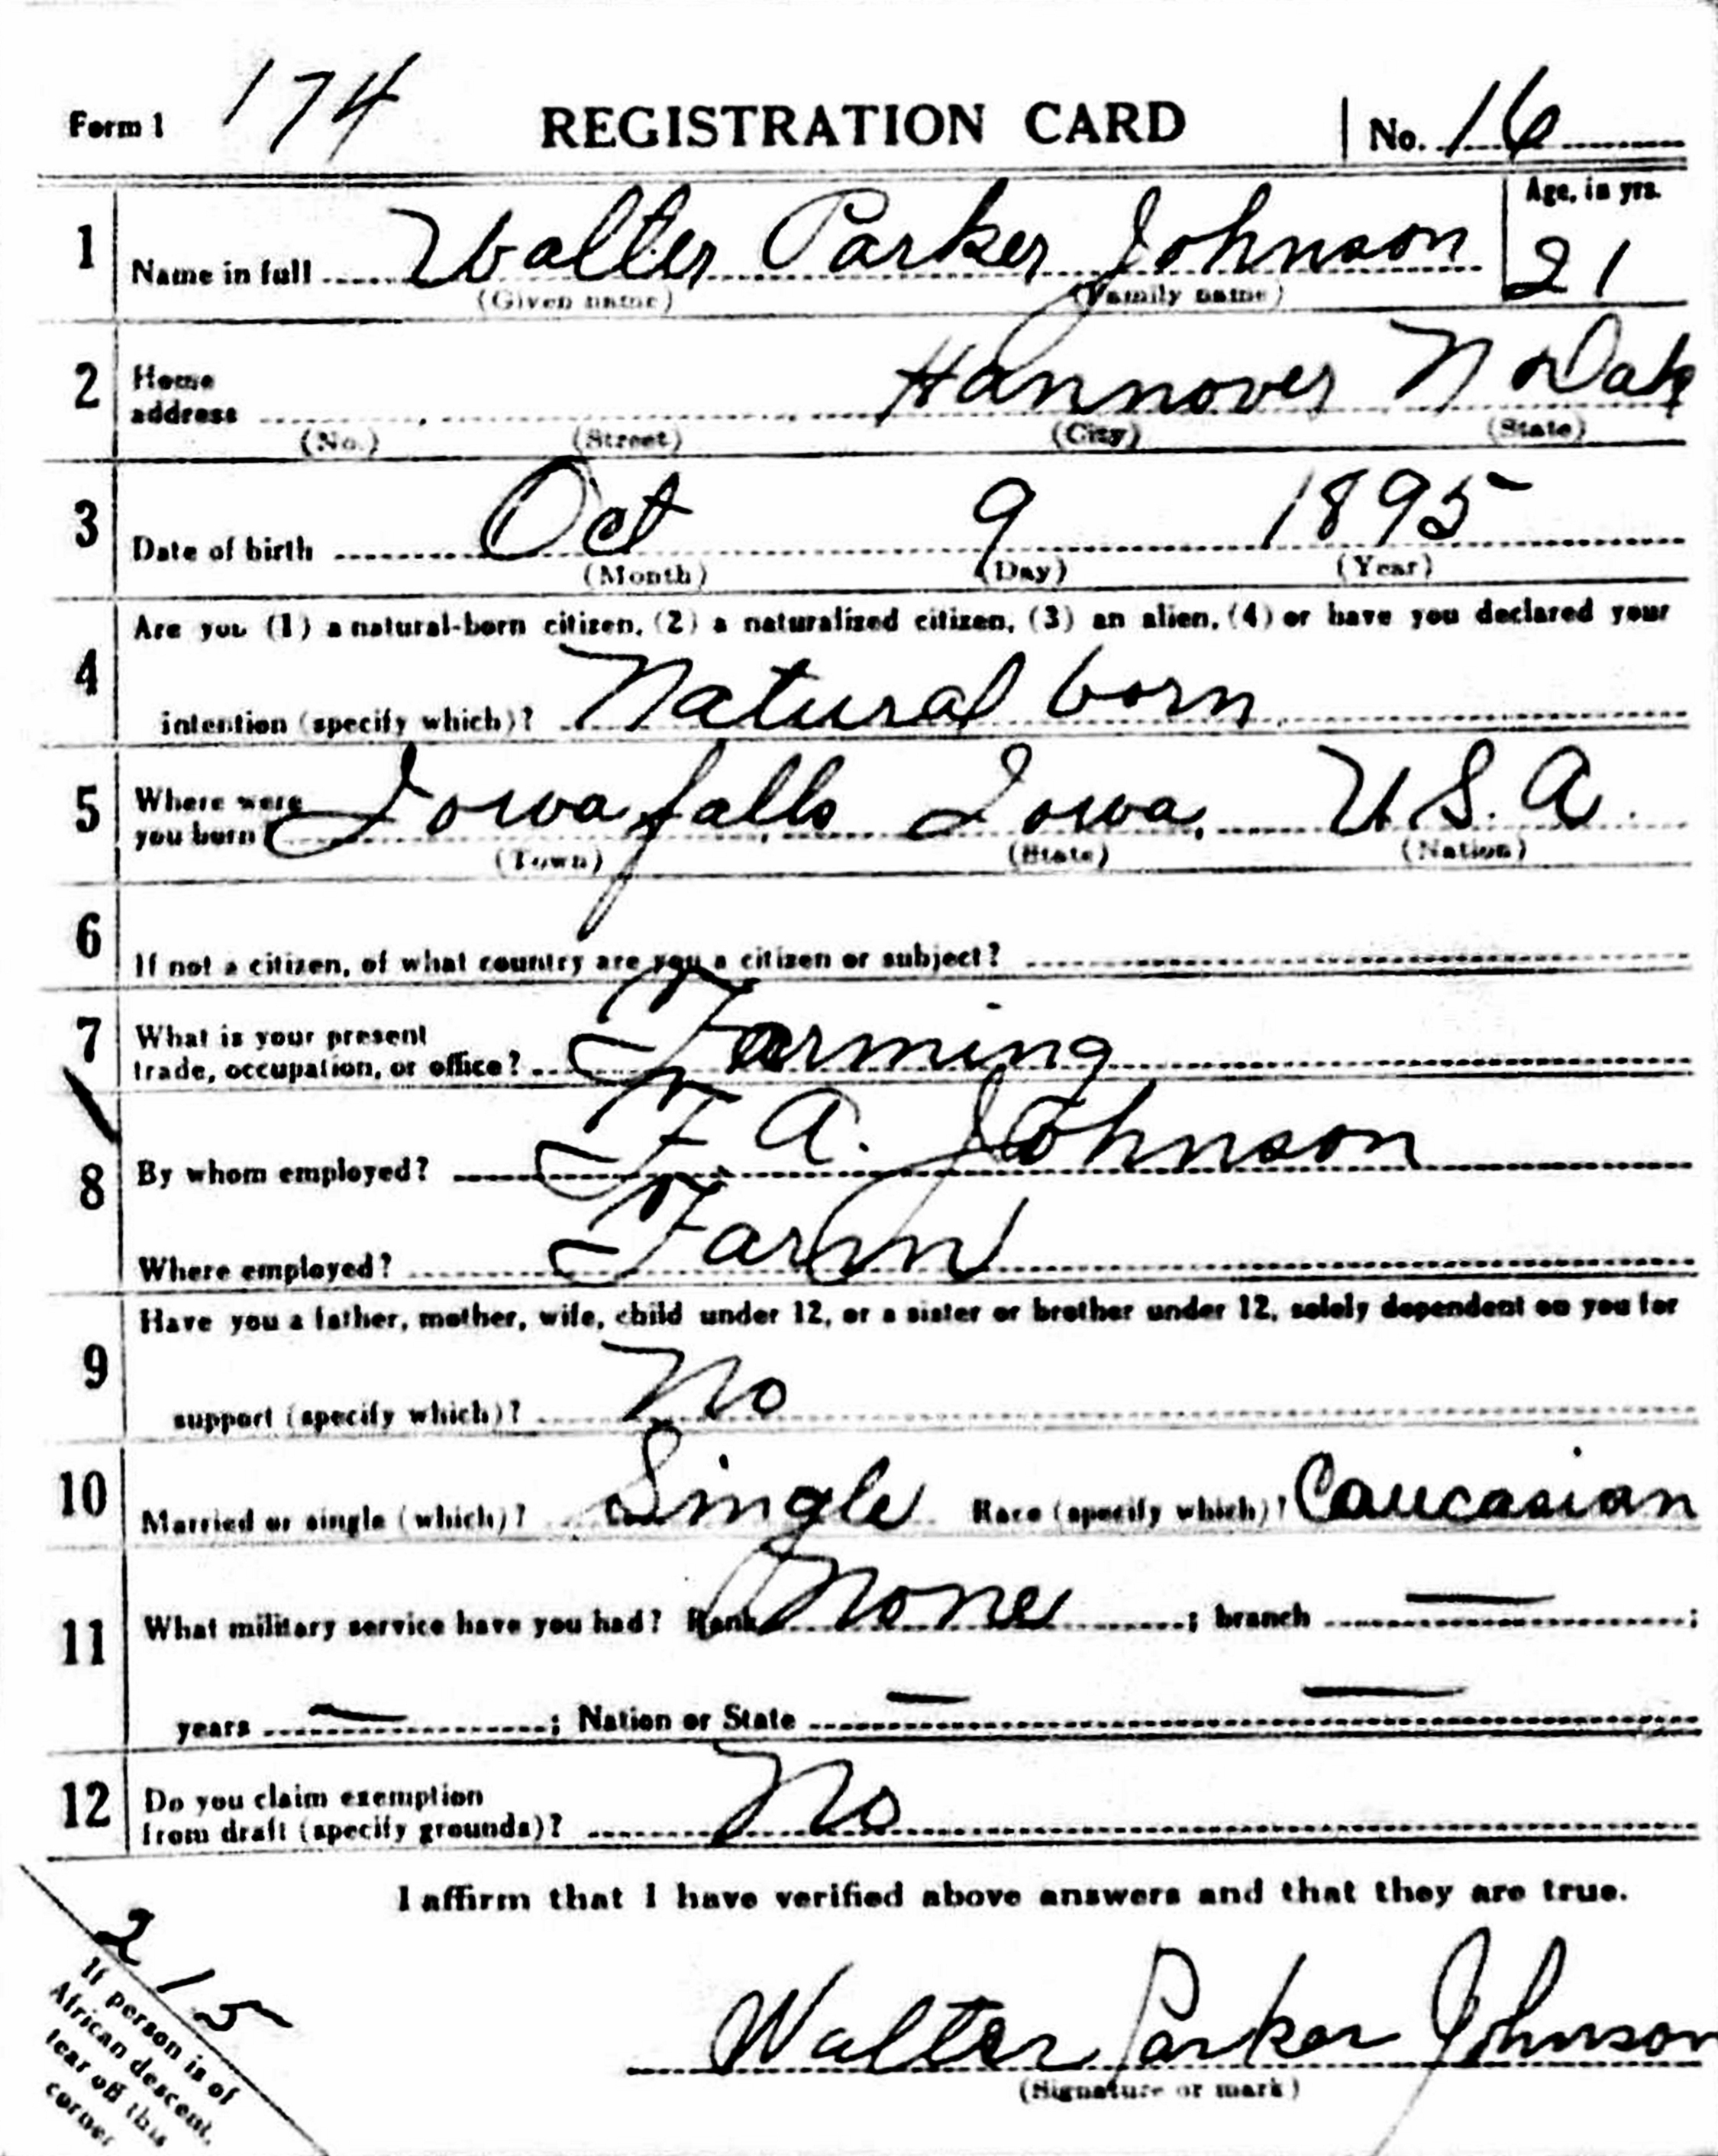 Form 1 174 REGISTRATION CARD No. 16
1 Name in full Walter Parker Johnson Age, in yrs. 21
(Given name) (Family name)
2 Home address Hannover N Dak
(No.) (Street) (City) (State)
3 Date of birth Oct 9 1895
(Month) (Day) (Year)
Are you (1) a natural-born citizen, (2) a naturalized citizen, (3) an alien, (4) or have you declared your
4 intention (specify which)? Natural born
5 Where were you born? Iowa falls Iowa, U.S.A.
(Town) (State) (Nation)
6 If not a citizen, of what country are you a citizen or subject?
7 What is your present trade, occupation, or office? Farming
8 By whom employed? F A. Johnson
Where employed? Farm
Have you a father, mother, wife, child under 12, or a sister or brother under 12, solely dependent on you for
9 support (specify which)? No
10 Married or single (which)? Single Race (specify which)? Caucasian
11 What military service have you had? Rank None ; branch — ;
years — ; Nation or State — —
12 Do you claim exemption from draft (specify grounds)? No
I affirm that I have verified above answers and that they are true.
215
If person is of
African descent,
tear off this
corner
Walter Parker Johnson
(Signature or mark)